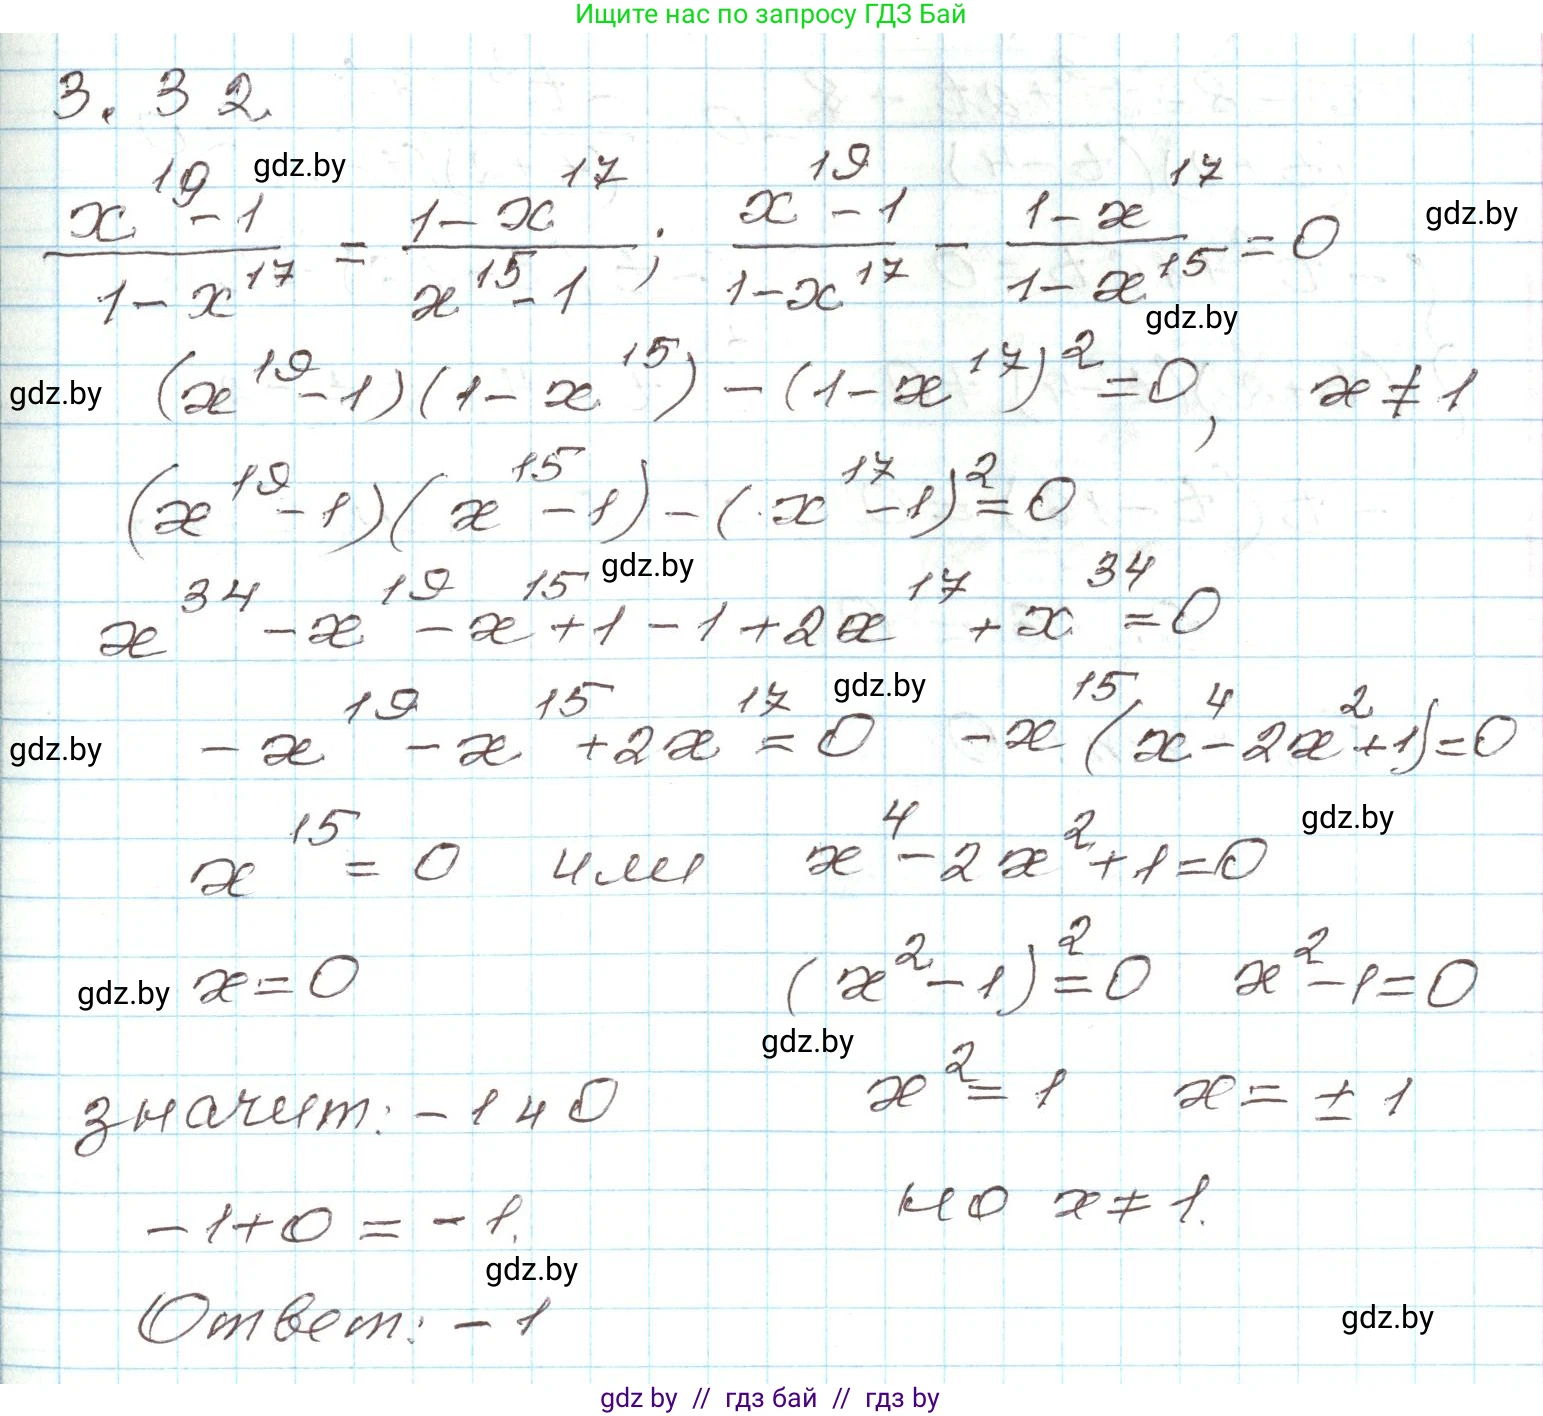 Ищите нас по запросу ГДЗ Бай
3.32.
gdz.by
(x^19 - 1)/(1 - x^17) = (1 - x^17)/(x^15 - 1); (x^19 - 1)/(1 - x^17) - (1 - x^17)/(1 - x^15) = 0
gdz.by
gdz.by
gdz.by
(x^19 - 1)(1 - x^15) - (1 - x^17)^2 = 0, x ≠ 1
(x^19 - 1)(x^15 - 1) - (x^17 - 1)^2 = 0
gdz.by
x^34 - x^19 - x^15 + 1 - 1 + 2x^17 + x^34 = 0
gdz.by
gdz.by
- x^19 - x^15 + 2x^17 = 0 - x^15(x^4 - 2x^2 + 1) = 0
gdz.by
x^15 = 0 или x^4 - 2x^2 + 1 = 0
gdz.by
x = 0 (x^2 - 1)^2 = 0 x^2 - 1 = 0
gdz.by
значит: - 1 и 0 x^2 = 1 x = ± 1
- 1 + 0 = - 1. но x ≠ 1.
gdz.by
Ответ: - 1
gdz.by
gdz by // гдз бай // гдз by